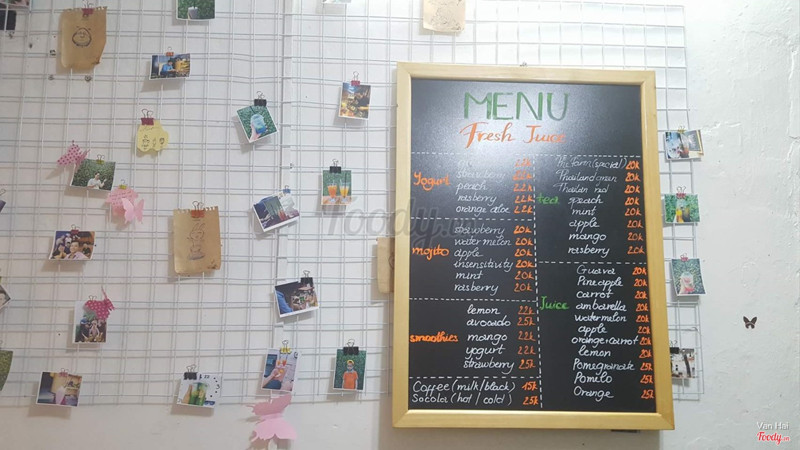 MENU
Fresh Juice
Yogurt
strawberry 22k
peach 22k
rasberry 22k
orange aloe 22k
mojito
strawberry 20k
water melon 20k
apple 20k
insensitivity 20k
mint 20k
rasberry 20k
smoothies
lemon 22k
avocado 25k
mango 22k
yogurt 22k
strawberry 25k
Coffee (milk/black) 15k
Socola (hot / cold) 25k
tea
(special) 20k
Thailand green 20k
Thailan red 20k
speach 20k
mint 20k
apple 20k
mango 20k
rasberry 20k
Juice
Guava 20k
Pineapple 20k
Carrot 20k
ambarella 20k
watermelon 20k
apple 20k
orange+carrot 20k
lemon 20k
Pomegranate 25k
Pomelo 25k
Orange 25k
Foody
Van Hai
Foody.vn